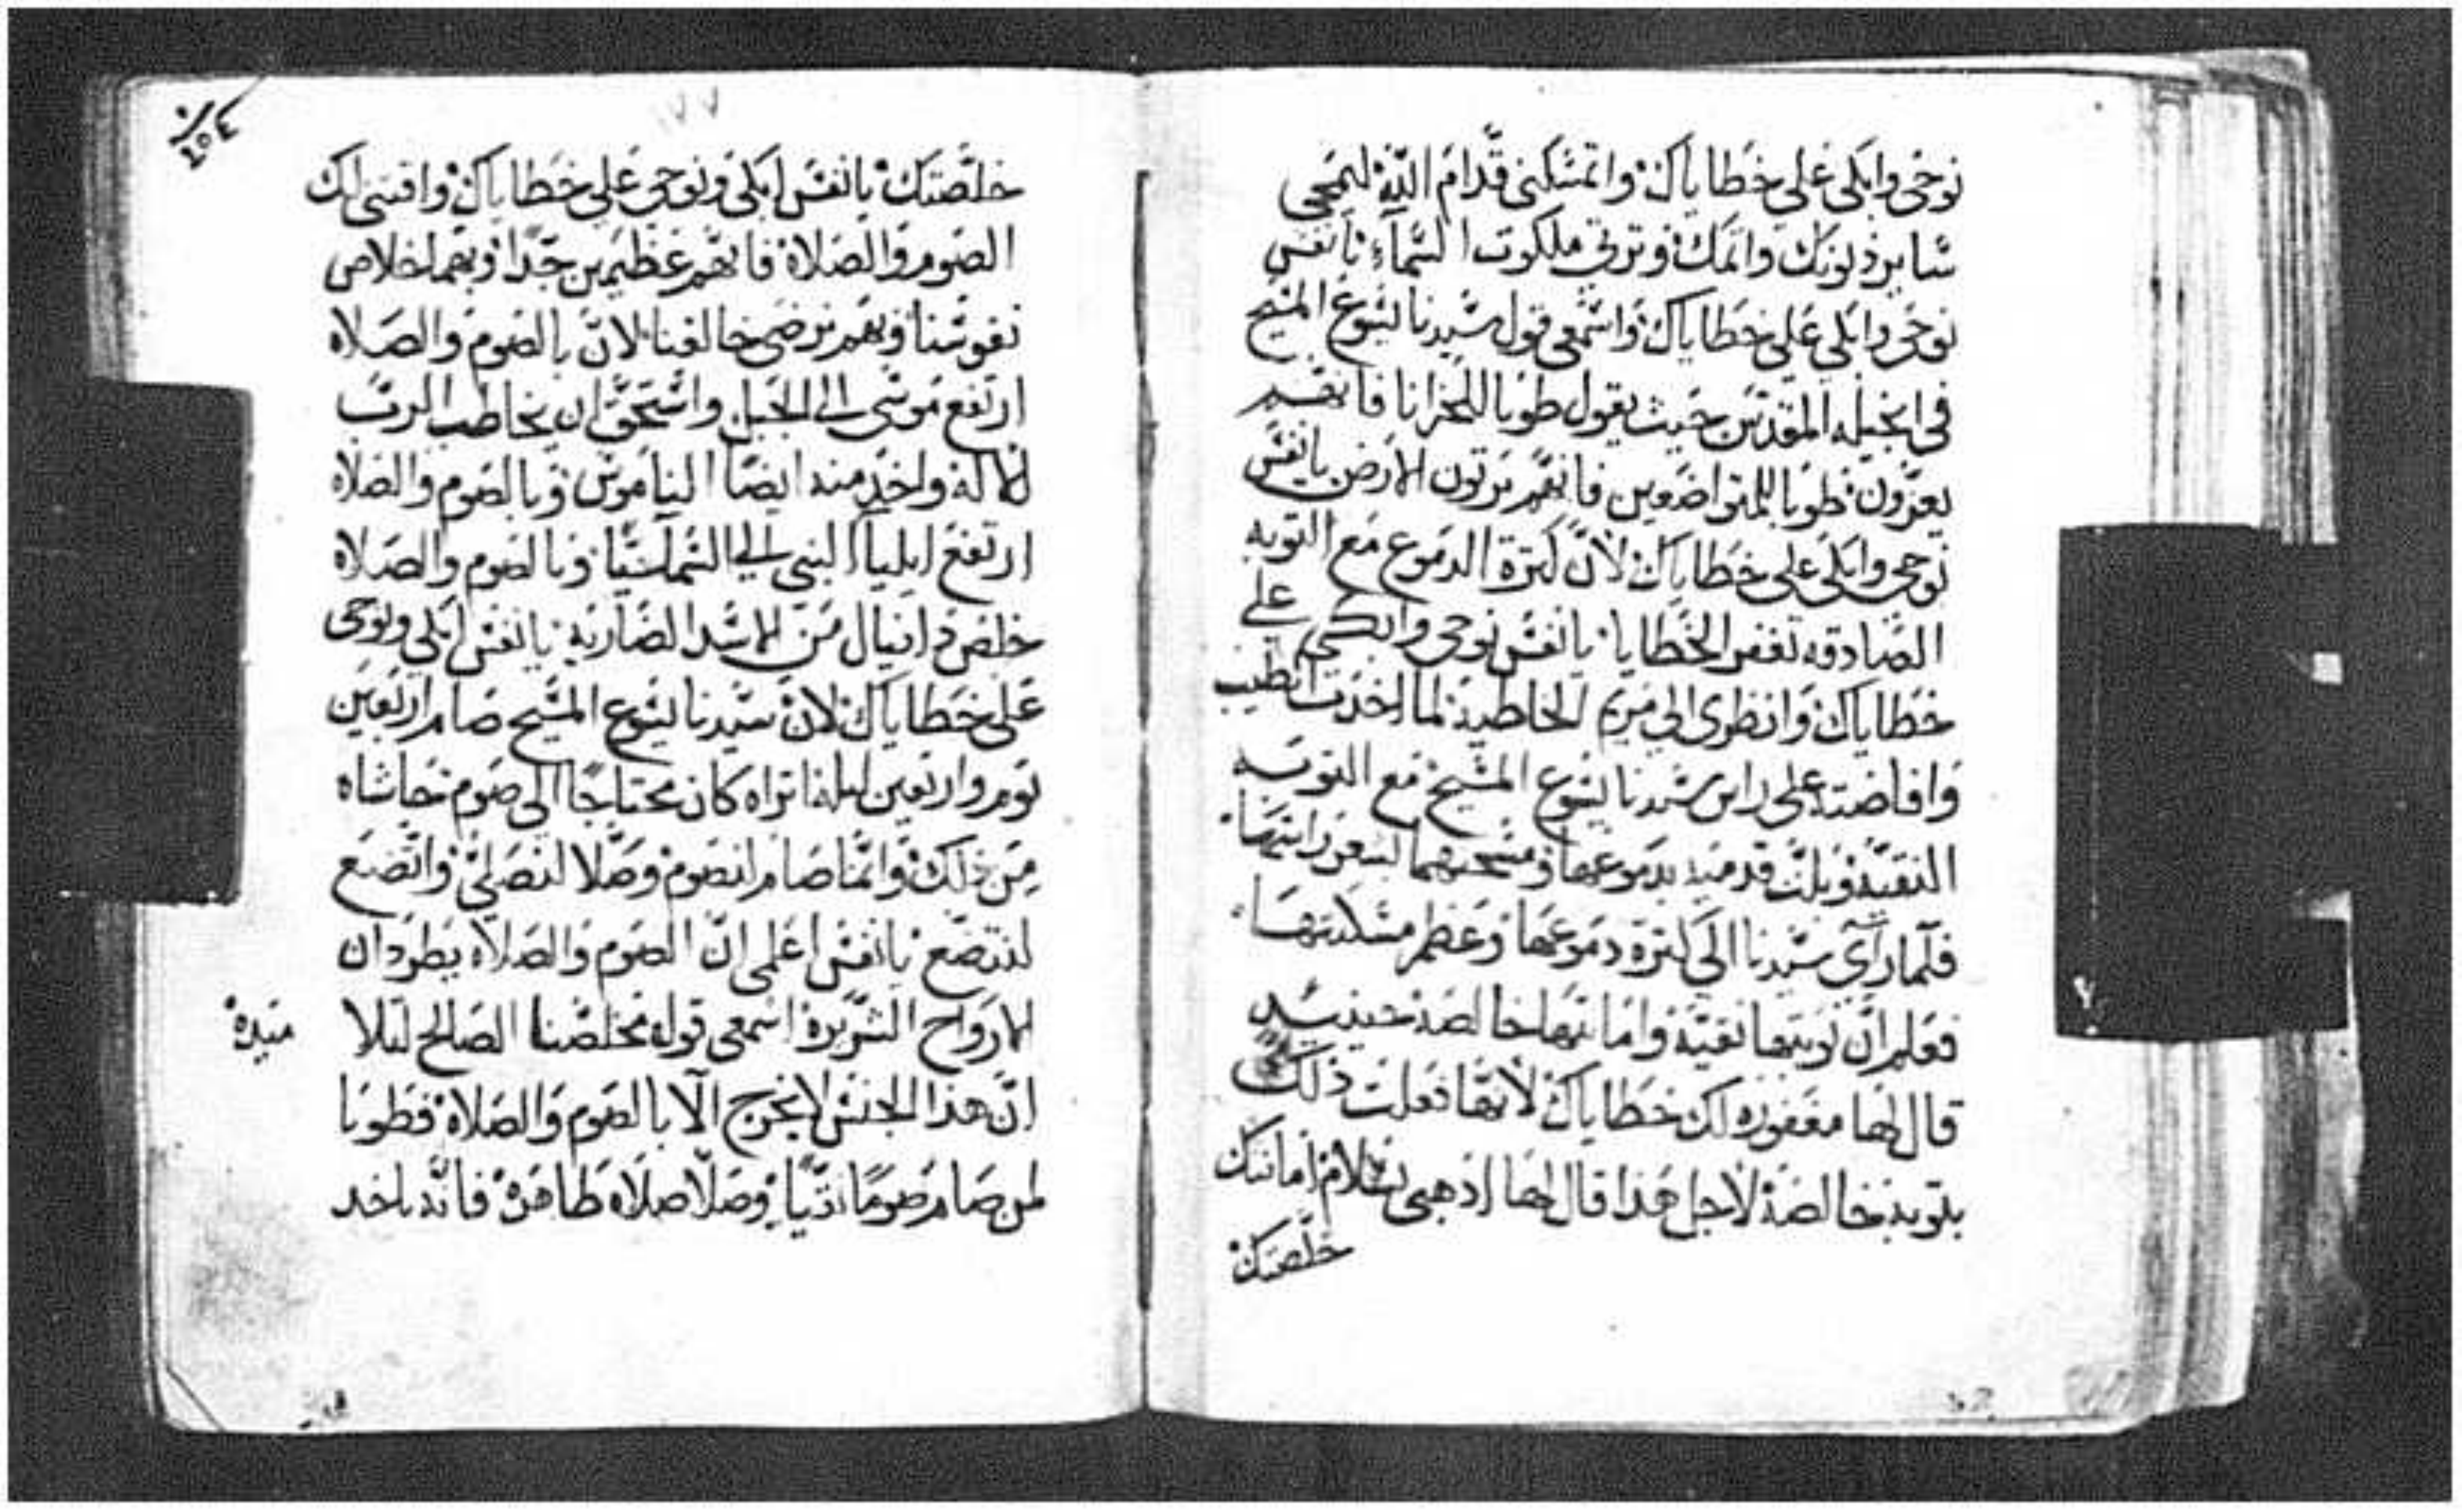 نوحى وابكى على خطاياك واتمسكنى قدام الله ليمحى
ساير ذنوبك واتمك وترتى ملكوت السماء يا نفس
نوحى وابكى على خطاياك واسمعى قول سيدنا يسوع المسيح
فى انجيله المقدس حيث يقول طوبا للحزانا فانهم
يعزون طوبا للمتواضعين فانهم يرتون الارض يا نفس
نوحى وابكى على خطاياك لان كترة الدموع مع التوبه
الصادقه تغفر الخطايا يا نفس نوحى وابكى على
خطاياك وانظرى الى مريم الخاطيه لما اخدت الطيب
وافاضته على راس سيدنا يسوع المسيح مع التوبه
النقيه وبلت قدميه بدموعها ومسحتهما بشعر راسها
فلما راى سيدنا الى كترة دموعها وعظم مسكنتها
فعلم ان توبتها نقيه وامانتها خالصه حينيد
قال لها مغفوره لك خطاياك لانها فعلت ذلك
بتوبه خالصه لاجل هذا قال لها ادهبى بسلام امانتك
خلصتك
١٧٧
خلصتك يا نفس ابكى ونوحى على خطاياك واقتنى لك
الصوم والصلاة فانهم عظيمين جدا وبهما خلاص
نفوسنا وبهم نرضى خالقنا لان بالصوم والصلاه
ارتفع موسى الى الجبل واستحق ان يخاطب الرب
الاله واخد منه ايضا الناموس وبالصوم والصلاه
ارتفع ايلياا النبى الى السما وبالصوم والصلاه
خلص دانيال من الاسد الضاريه يا نفس ابكى ونوحى
على خطاياك لان سيدنا يسوع المسيح صام اربعين
يوم واربعين ليله اتراه كان محتاجا الى صوم حاشاه
من ذلك وانما صام لنصوم وصلا لنصلى واتضع
لنتضع يا نفس اعلمى ان الصوم والصلاه يطردان
الارواح الشريرة اسمعى قوله مخلصنا الصالح لتلا
ميده
ان هذا الجنس لا يخرج الا بالصوم والصلاة فطوبا
لمن صام صوما نقيا وصلا صلاه طاهره فانه ياخد